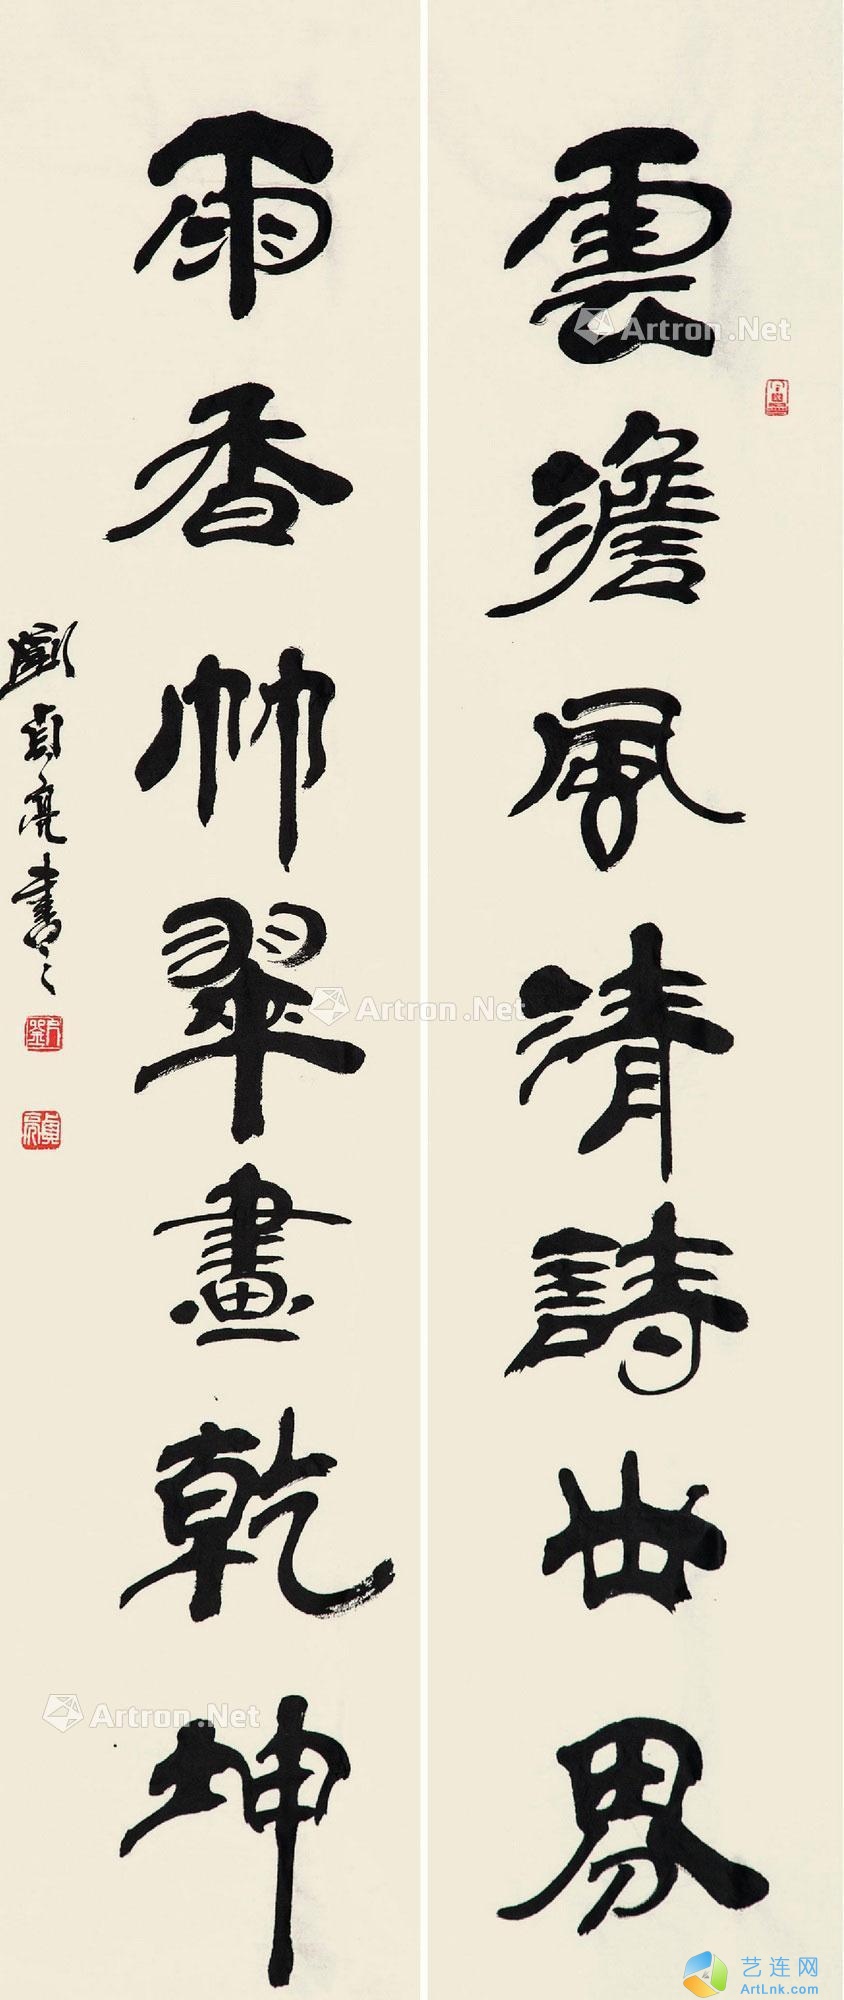 雲澹風清詩世界
雨香竹翠畫乾坤
劉貞亮書之
Artron.Net
Artron.Net
Artron.Net
艺连网
ArtLnk.com